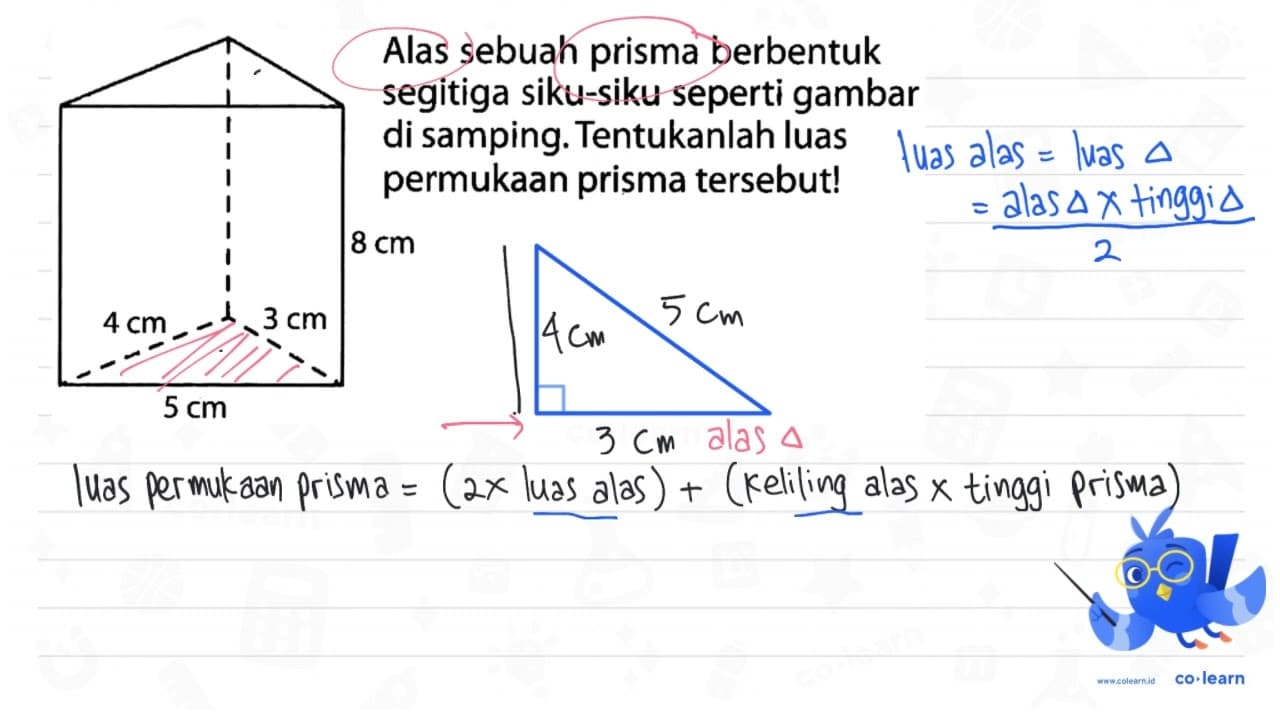 Alas sebuah prisma berbentuk
segitiga siku-siku seperti gambar
di samping. Tentukanlah luas
permukaan prisma tersebut!
luas alas = luas Δ
= alas Δ x tinggi Δ
2
8 cm
4 cm
3 cm
5 cm
4 cm
5 cm
3 cm alas Δ
luas permukaan prisma = (2x luas alas) + (keliling alas x tinggi prisma)
www.colearn.id
co·learn